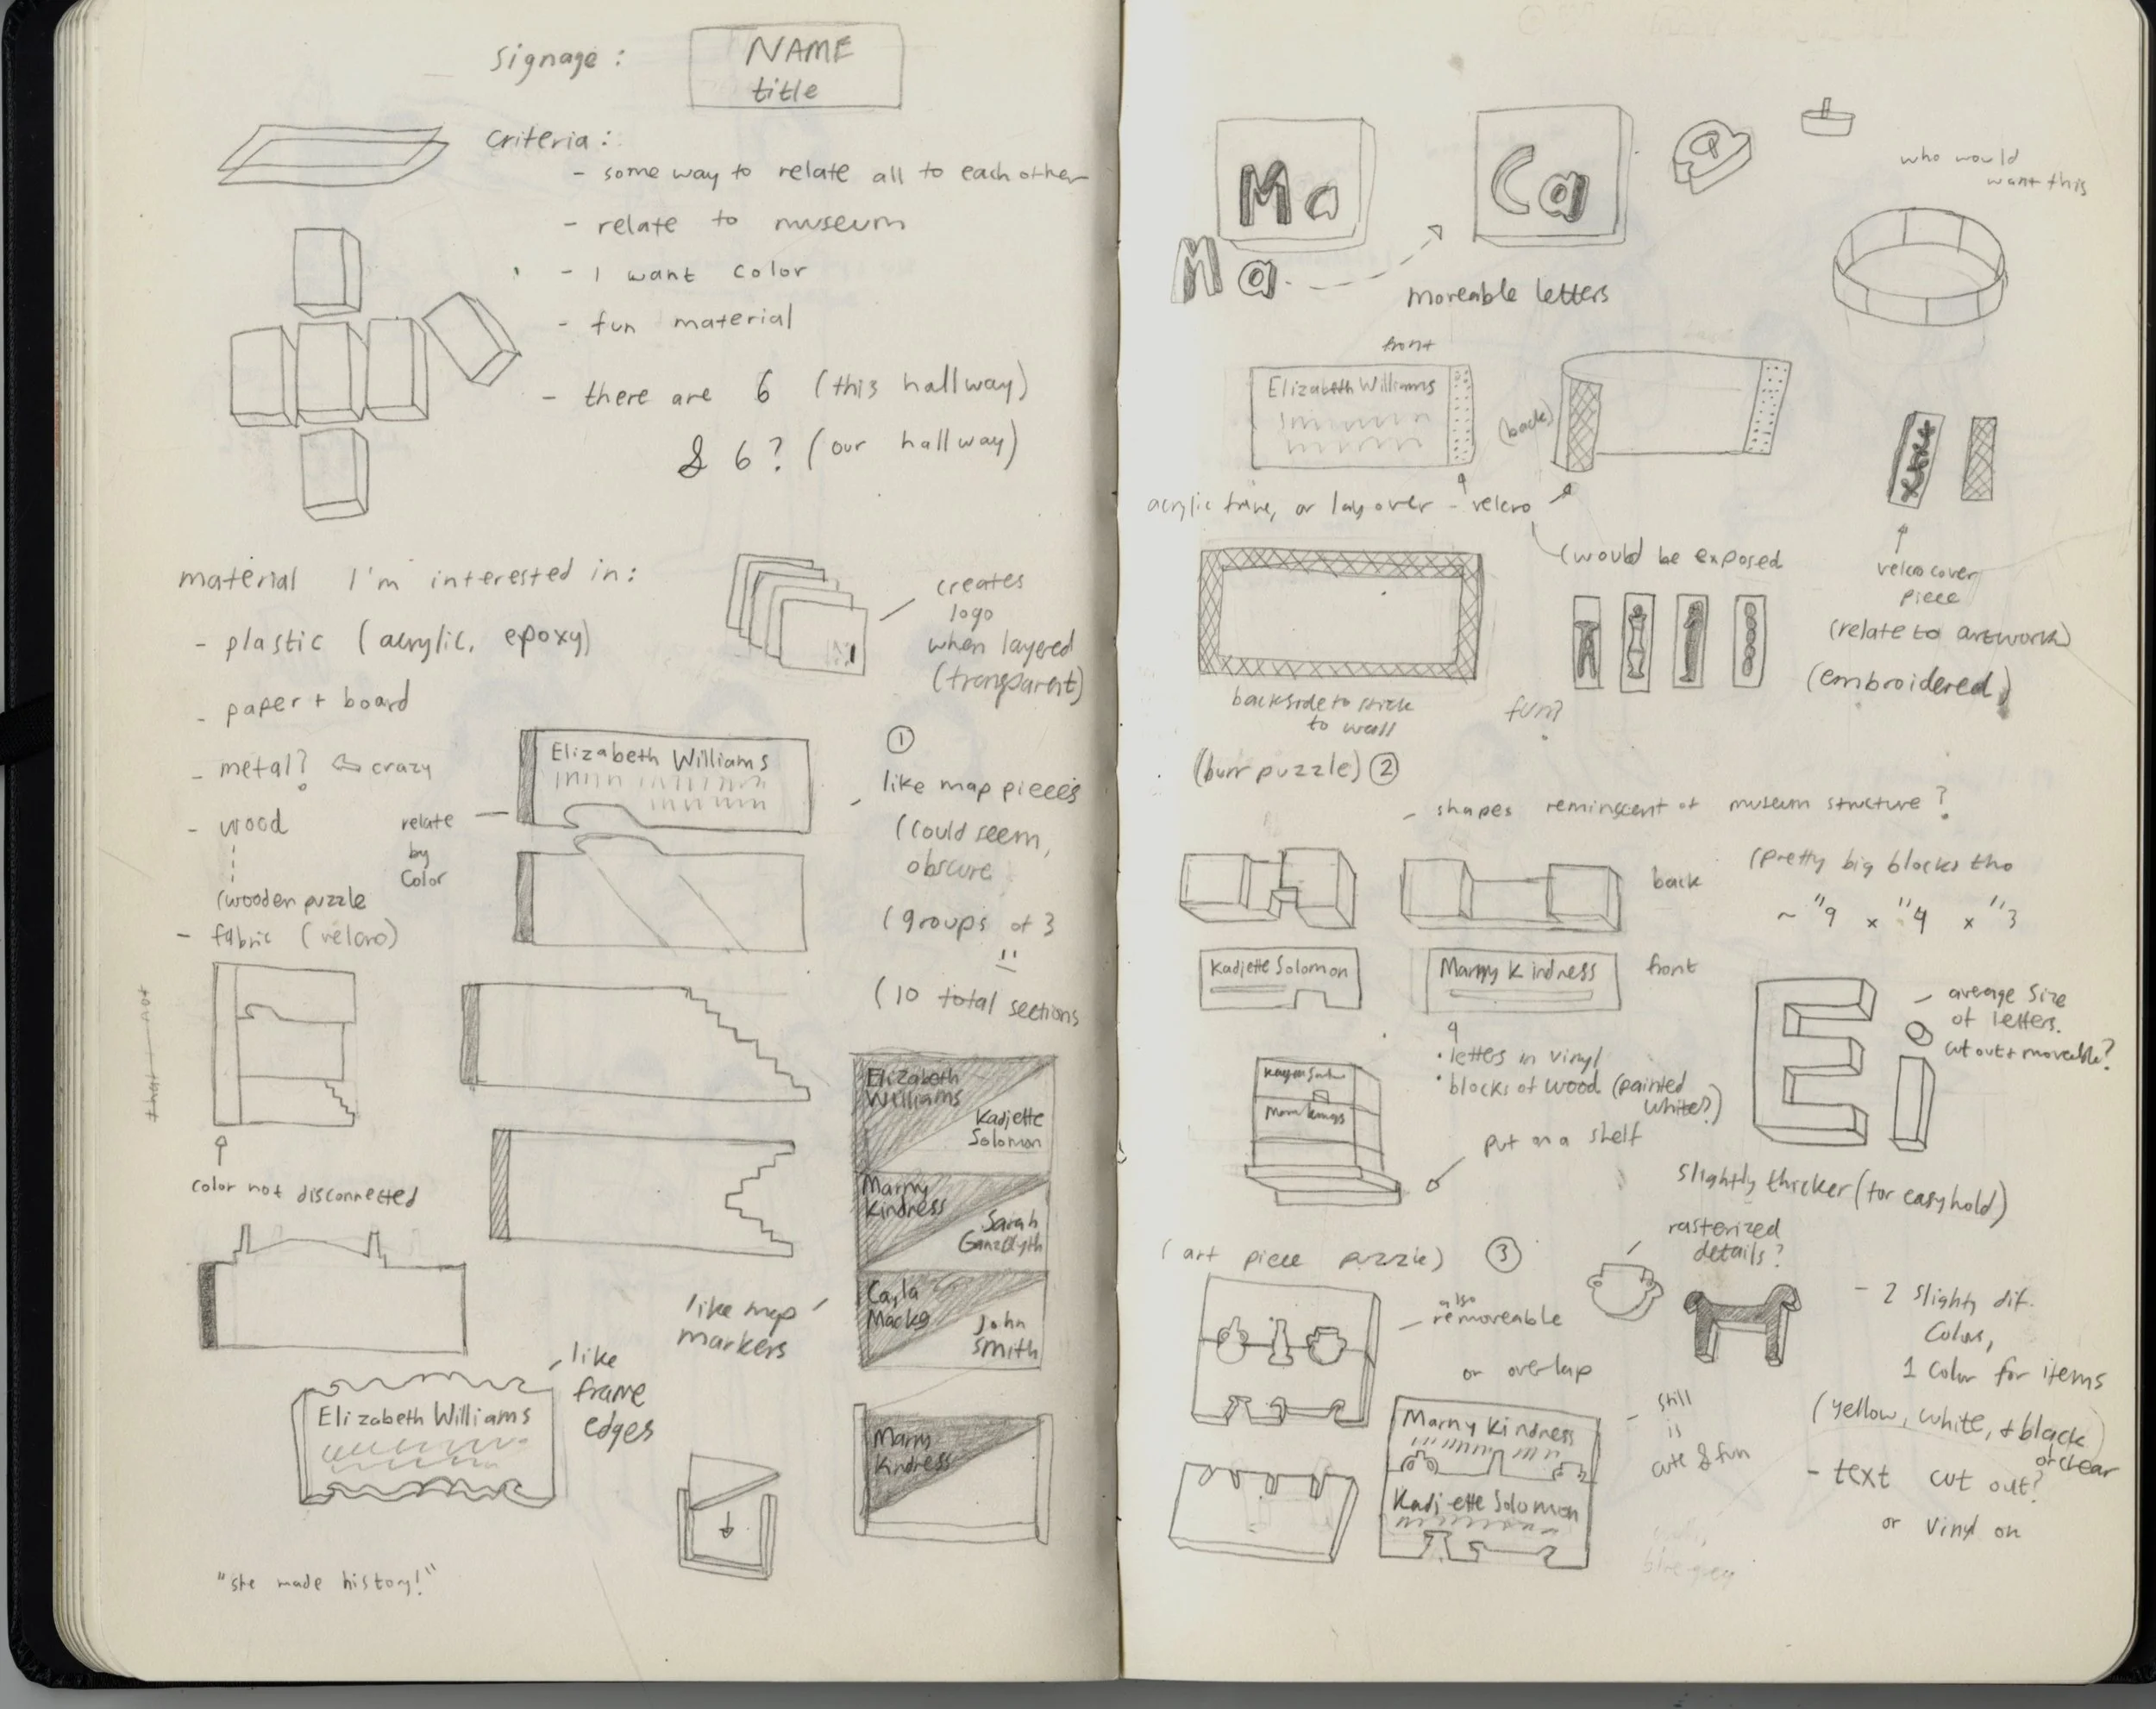 signage :
NAME
title
criteria :
- some way to relate all to each other
- relate to museum
- I want color
- fun material
- there are 6 (this hallway)
& 6? (our hallway)
material I'm interested in:
- plastic (acrylic, epoxy)
- paper + board
- metal? ⇐ crazy
- wood
(wooden puzzle
- fabric (velcro)
creates
logo
when layered
(transparent)
relate
by
color
Elizabeth Williams
①
like map pieces
(could seem,
obscure
(groups of 3
(10 total sections
that — not
color not disconnected
Elizabeth
Williams
Kadjette
Solomon
Marny
Kindness
Sarah
Cayla
John
Smith
like map
markers
like
frame
edges
Elizabeth Williams
Marny
Kindness
"she made history!"
Ma
Ca
a
Ma
moveable letters
who would
want this
front
Elizabeth Williams
(back)
acrylic frame, or lay over - velcro
(would be exposed
velcro cover
piece
(relate to artwork)
(embroidered)
backside to stick
to wall
fun?
(burr puzzle) ②
- shapes reminscent of museum structure?
back
(pretty big blocks tho
~ "9 x "4 x "3
Kadjette Solomon
Marny Kindness
front
• letters in vinyl
• blocks of wood (painted
white?)
put on a shelf
Ei
- average size
of letters.
cut out + moveable?
slightly thicker (for easy hold)
(art piece puzzle) ③
rasterized
details?
also
- removeable
or overlap
- 2 slighty dif.
colors,
1 color for items
(yellow, white, + black)
or clear
- text cut out?
or vinyl on
Marny Kindness
Kadjette Solomon
- still
is
cute & fun